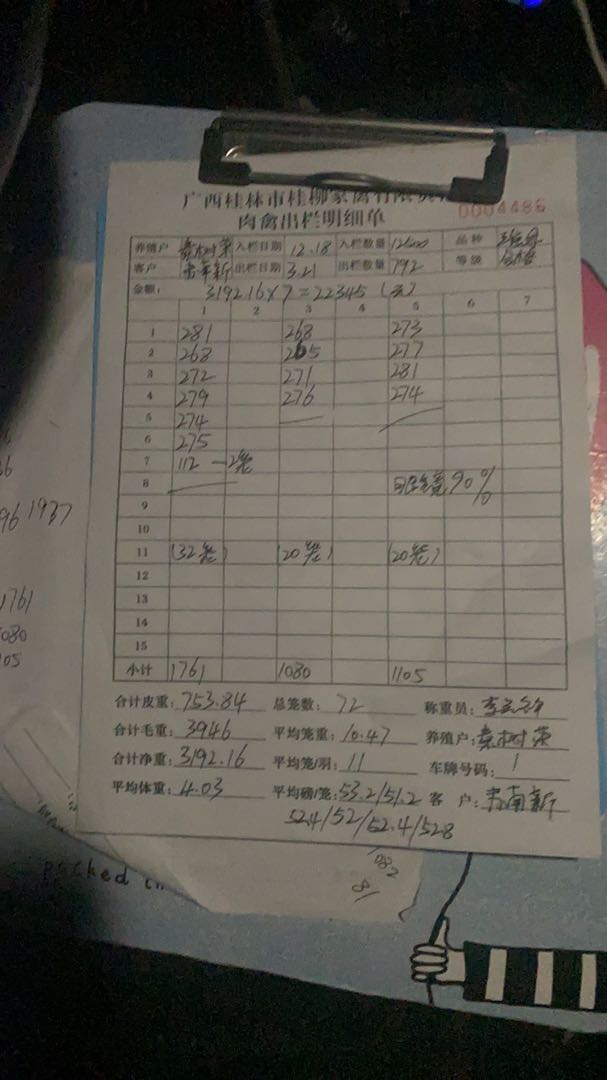 广西桂林市桂柳家禽有限
肉禽出栏明细单
0004486
养殖户 秦树荣 入栏日期 12.18 入栏数量 12500 品种
客户 出栏日期 3.21 出栏数量 792 等级 合格
金额: 3192.16×7=22345(元)
1 2 3 4 5 6 7
1 281 268 273
2 268 265 277
3 272 271 281
4 279 276 274
5 274
6 275
7 112 —2笼
8 90%
9
10
11 (32笼) (20笼) (20笼)
12
13
14
15
小计 1761 1080 1105
合计皮重: 753.84 总笼数: 72 称重员:
合计毛重: 3946 平均笼重: 10.47 养殖户: 秦树荣
合计净重: 3192.16 平均笼/羽: 11 车牌号码: 1
平均体重: 4.03 平均磅/笼: 53.2/51.2 客户:
52.4/52/52.4/52.8
96 1937
1761
1080
105
1082
81
packed in